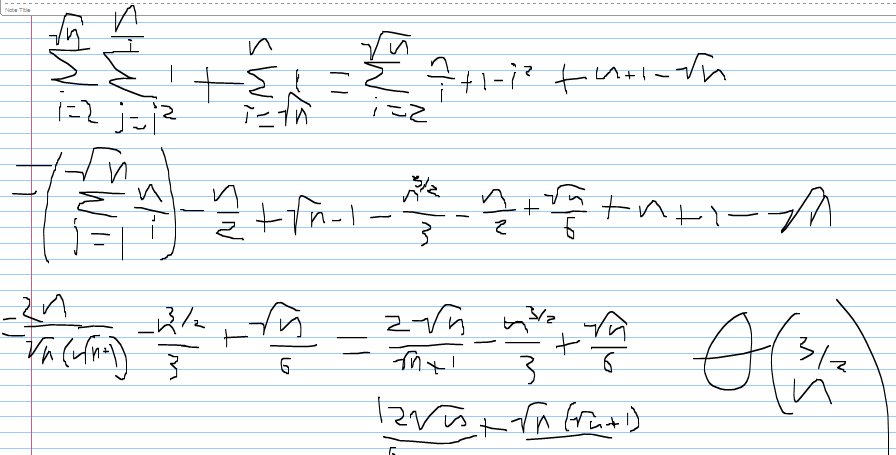 Note Title
\sum_{i=2}^{\sqrt{n}} \sum_{j=i^2}^{\frac{n}{i}} 1 + \sum_{i=\sqrt{n}}^{n} 1 = \sum_{i=2}^{\sqrt{n}} \frac{n}{i} + 1 - i^2 + n + 1 - \sqrt{n}
= \left( \sum_{j=1}^{\sqrt{n}} \frac{n}{i} \right) - \frac{n}{2} + \sqrt{n} - 1 - \frac{n^{3/2}}{3} - \frac{n}{2} + \frac{\sqrt{n}}{6} + n + 1 - \sqrt{n}
= \frac{2n}{\sqrt{n}(\sqrt{n}+1)} - \frac{n^{3/2}}{3} + \frac{\sqrt{n}}{6} = \frac{2\sqrt{n}}{\sqrt{n}+1} - \frac{n^{3/2}}{3} + \frac{\sqrt{n}}{6} \quad \Theta(n^{3/2})
12\sqrt{n} + \sqrt{n}(\sqrt{n}+1)